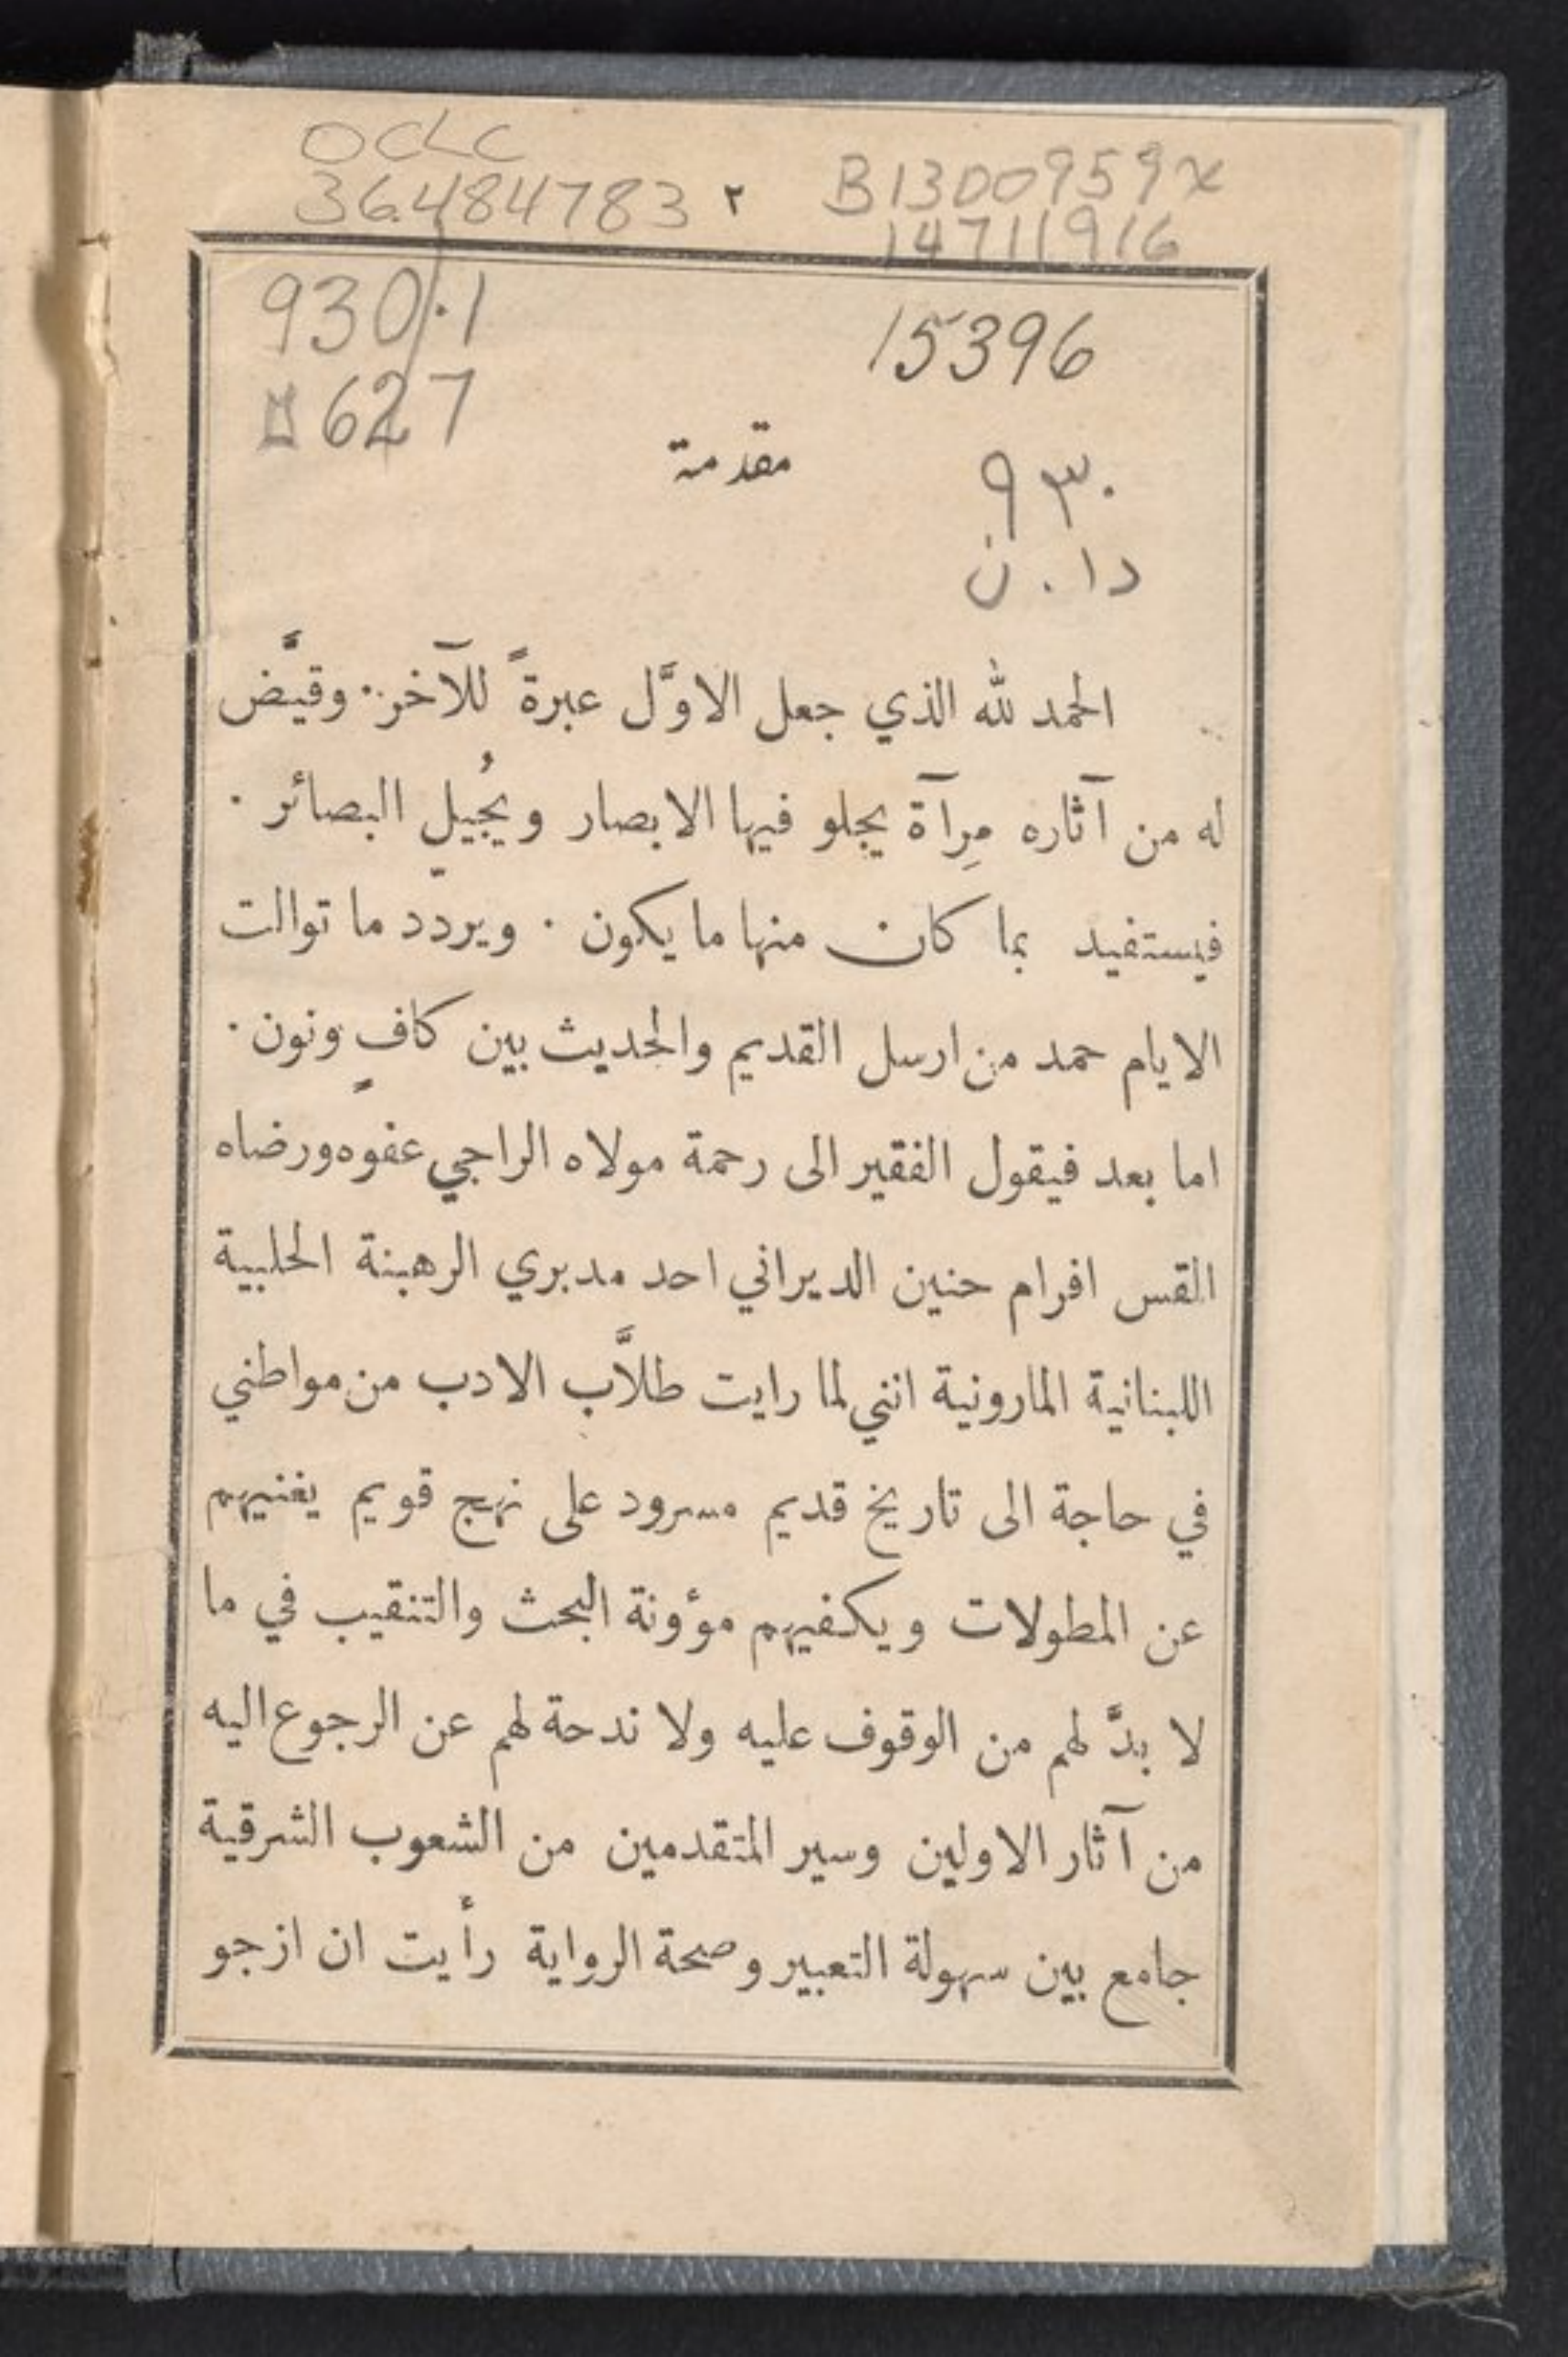 OCLC
36484783 ٢ B1300959x
14711916
930.1 15396
627
مقدمة
٩٣٠
دا.ن
الحمد لله الذي جعل الاوَّل عبرةً للآخر. وقيَّض
له من آثاره مِرآة يجلو فيها الابصار ويُجيل البصائر.
فيستفيد بما كان منها ما يكون. ويردّد ما توالت
الايام حمد من ارسل القديم والحديث بين كافٍ ونون.
اما بعد فيقول الفقير الى رحمة مولاه الراجي عفوه ورضاه
القس افرام حنين الديراني احد مدبري الرهبنة الحلبية
اللبنانية المارونية انني لما رايت طلاَّب الادب من مواطني
في حاجة الى تاريخ قديم مسرود على نهج قويم يغنيهم
عن المطولات ويكفيهم مؤونة البحث والتنقيب في ما
لا بدَّ لهم من الوقوف عليه ولا ندحة لهم عن الرجوع اليه
من آثار الاولين وسير المتقدمين من الشعوب الشرقية
جامع بين سهولة التعبير وصحة الرواية رأيت ان ازجو